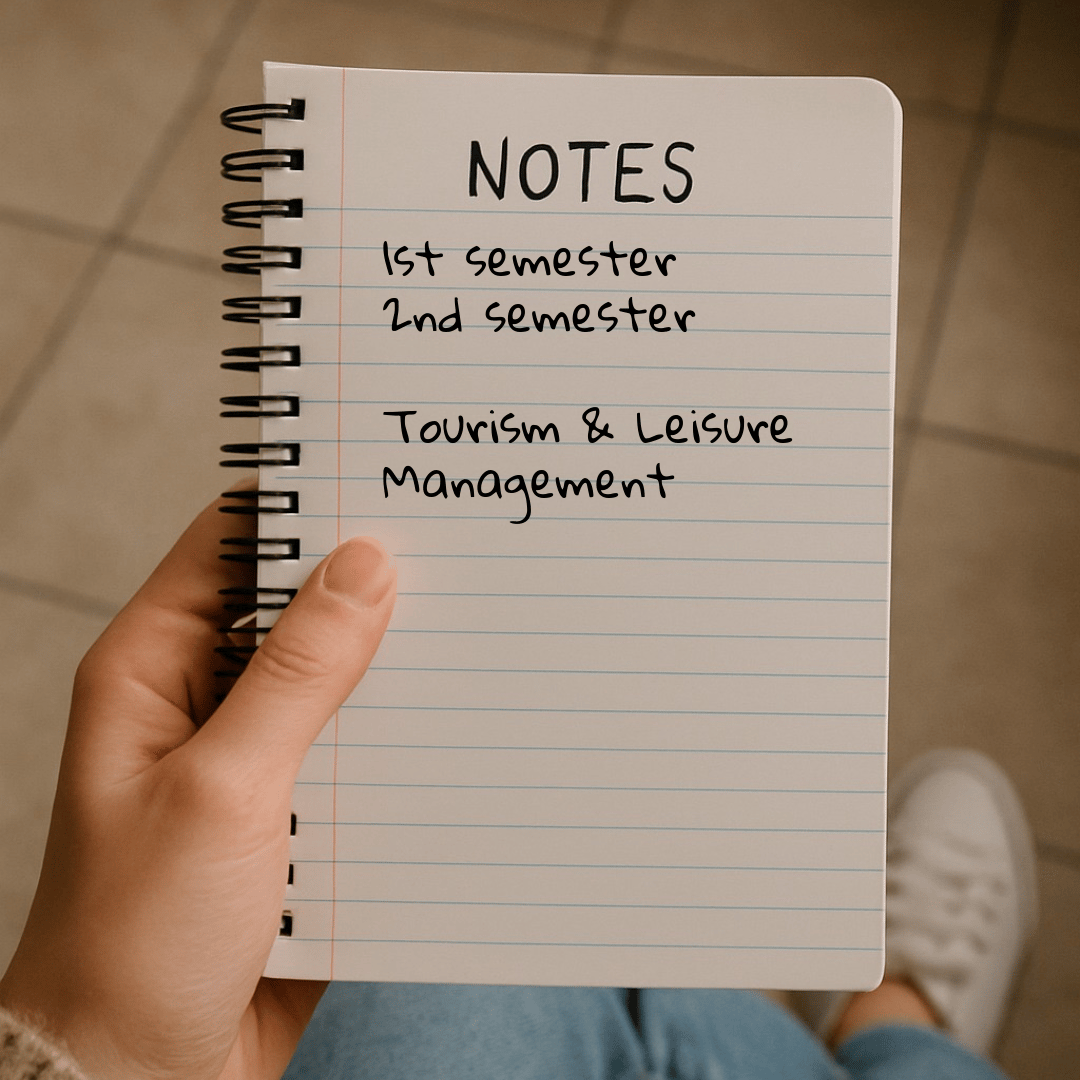 NOTES
1st semester
2nd semester
Tourism & Leisure
Management